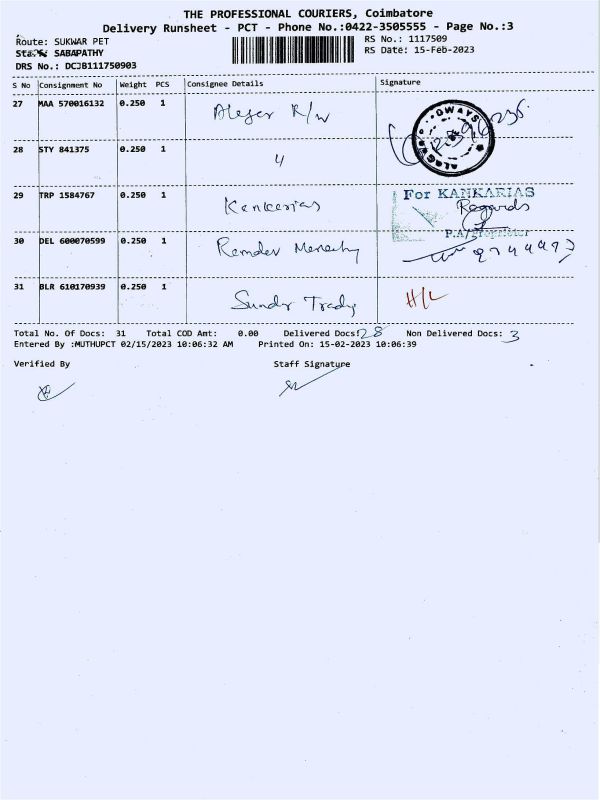 THE PROFESSIONAL COURIERS, Coimbatore
Delivery Runsheet - PCT - Phone No.:0422-3505555 - Page No.:3
Route: SUKWAR PET
RS No.: 1117509
SABAPATHY
RS Date: 15-Feb-2023
DRS No.: DCJB111750903
S No Consignment No Weight PCS Consignee Details Signature
27 MAA 570016132 0.250 1
28 STY 841375 0.250 1 4
29 TRP 1584767 0.250 1 Kankarias For KANKARIAS
Regards
P.A/Proprietor
30 DEL 600070599 0.250 1 Ramdev
31 BLR 610170939 0.250 1 H/L
Total No. Of Docs: 31 Total COD Amt: 0.00 Delivered Docs: 28 Non Delivered Docs: 3
Entered By :MUTHUPCT 02/15/2023 10:06:32 AM Printed On: 15-02-2023 10:06:39
Verified By Staff Signature